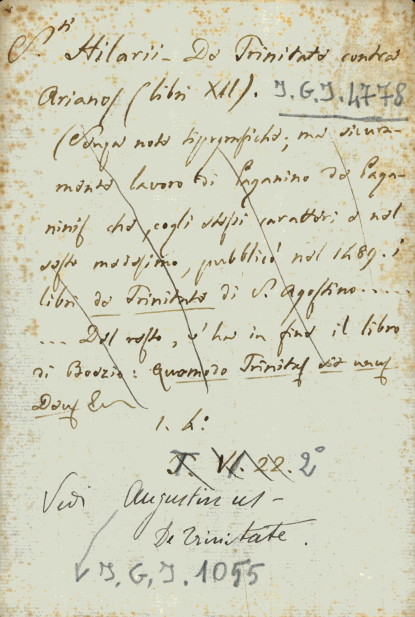 S.ti Hilarii - De Trinitate contra
Arianos (libri XII). I.G.I. 4778
(Senza note tipografiche; ma sicura-
mente lavoro di Paganino de Paga-
ninis che, cogli stessi caratteri e nel
sesto medesimo, pubblicò nel 1489. i
libri de Trinitate di S. Agostino.....
... Del resto, v'ha in fine il libro
di Boezio: Quomodo Trinitas sit unus
Deus &
1. 4:
T. VI. 22. 2°
Vedi Augustinus -
De Trinitate.
I.G.I. 1055